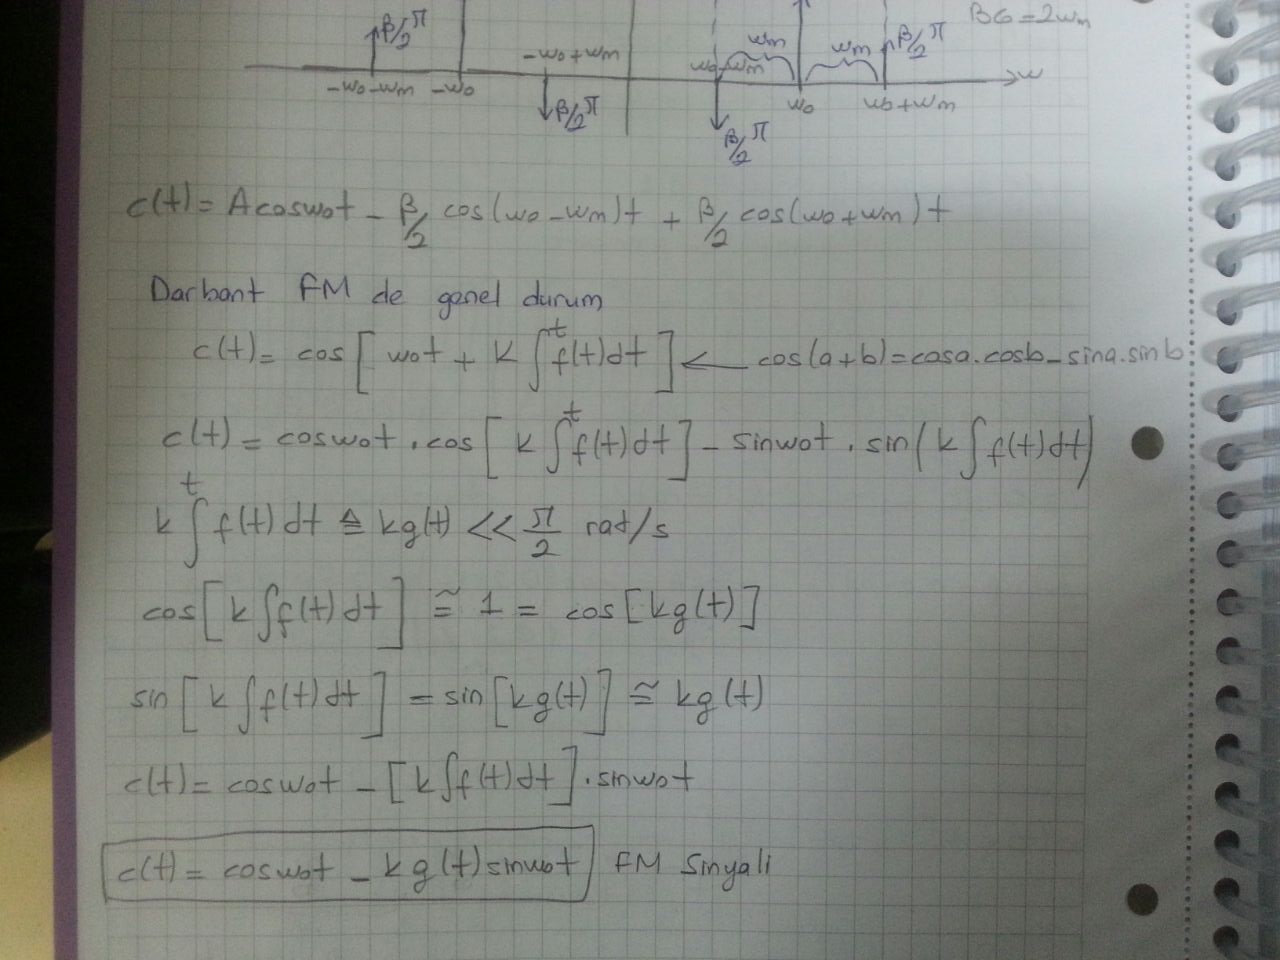 BG=2wm
β/2 π
wm
wm
β/2 π
-w0+wm
w0-wm
w
-w0-wm
-w0
β/2 π
w0
w0+wm
β/2 π
c(t)= A cosw0t - β/2 cos(w0-wm)t + β/2 cos(w0+wm)t
Darbant FM de genel durum
c(t)= cos[w0t + k∫ᵗf(t)dt] ← cos(a+b)=cosa.cosb-sina.sinb
c(t)= cosw0t.cos[k∫ᵗf(t)dt] - sinw0t.sin(k∫f(t)dt)
k∫ᵗf(t)dt ≙ kg(t) << π/2 rad/s
cos[k∫f(t)dt] ≅ 1 = cos[kg(t)]
sin[k∫f(t)dt] = sin[kg(t)] ≅ kg(t)
c(t)= cosw0t - [k∫f(t)dt].sinw0t
c(t)= cosw0t - kg(t)sinw0t FM Sinyali